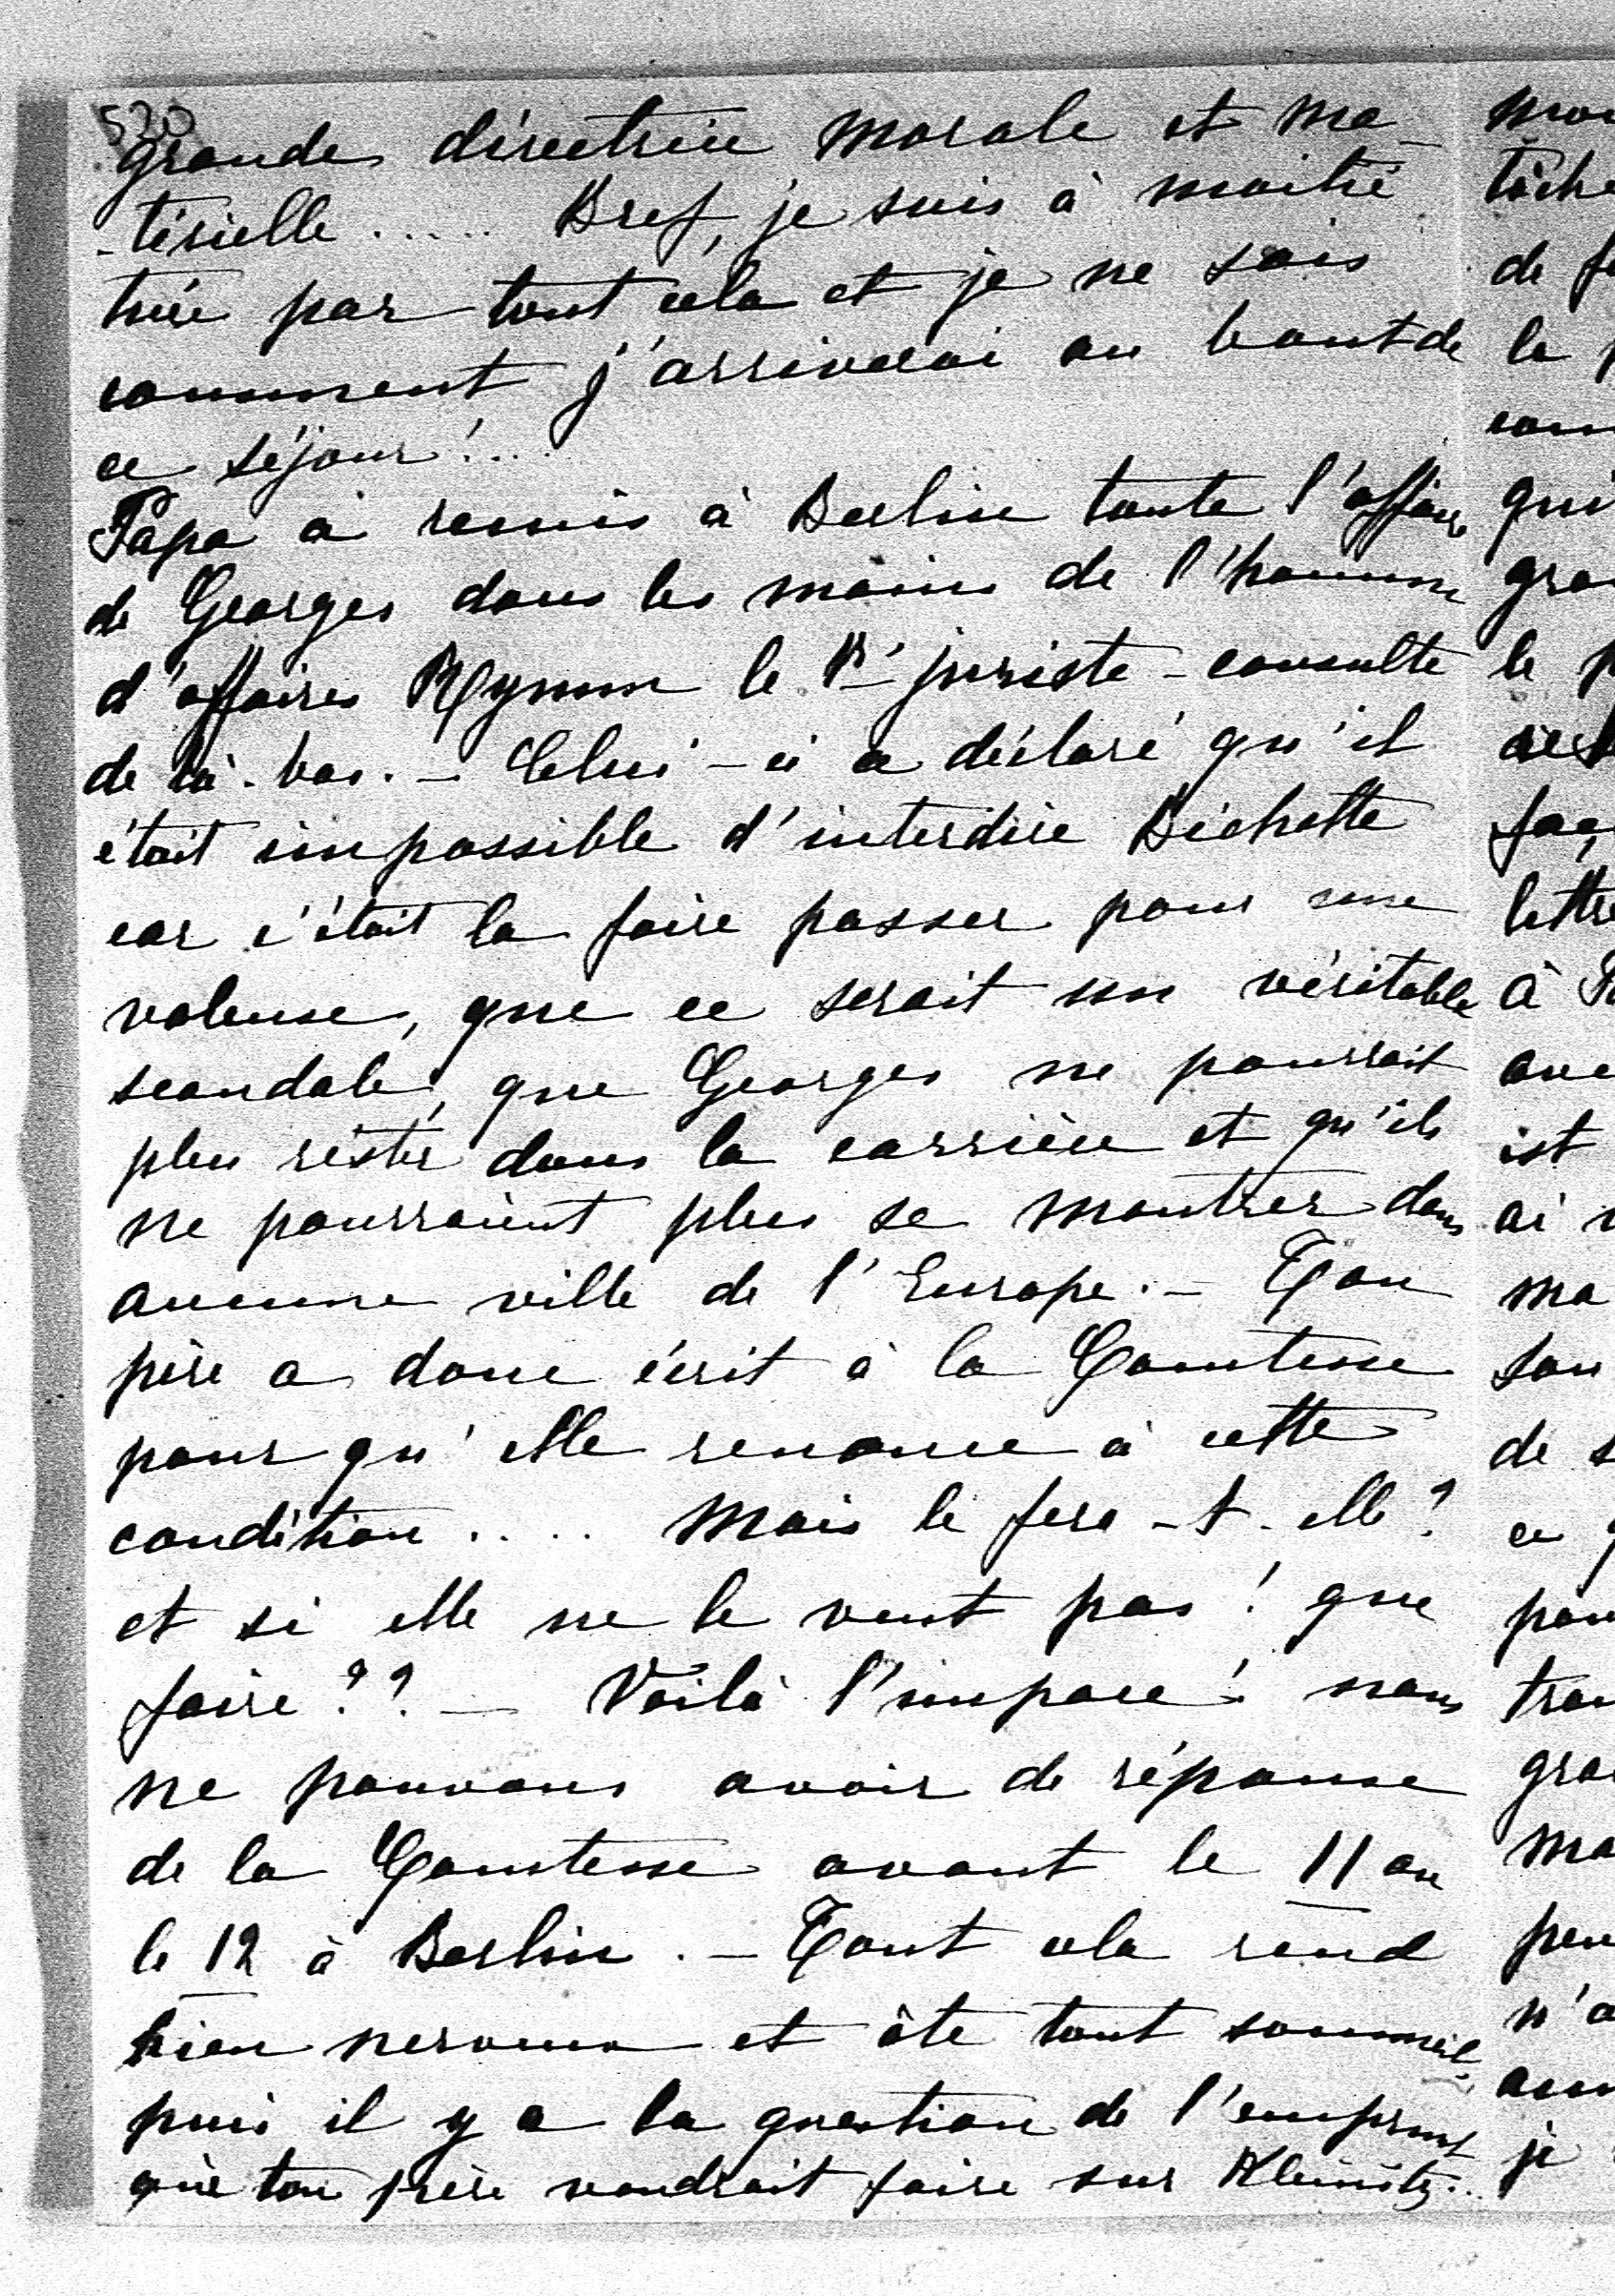 520
grande directrice morale et ma-
-térielle ..... Bref, je suis à moitié
tuée par tout cela et je ne sais
comment j'arriverai au bout de
ce séjour!...
Papa a remis à Berlin toute l'affaire
de Georges dans les mains de l'homme
d'affaires le 1er juriste-consulte
de là-bas. - Celui-ci a déclaré qu'il
était impossible d'interdire Bichette
car c'était la faire passer pour une
voleuse, que ce serait un véritable
scandale, que Georges ne pourrait
plus rester dans la carrière et qu'ils
ne pourraient plus se montrer dans
aucune ville de l'Europe. - Ton
père a donc écrit à la Comtesse
pour qu'elle renonce à cette
condition .... Mais le fera-t-elle?
et si elle ne le veut pas! que
faire?? - Voilà l'impasse! nous
ne pouvons avoir de réponse
de la Comtesse avant le 11 ou
le 12 à Berlin. - Tout cela rend
bien nerveux et ôte tout sommeil.
puis il y a la question de l'emprunt
que ton père voudrait faire sur Kleinitz...